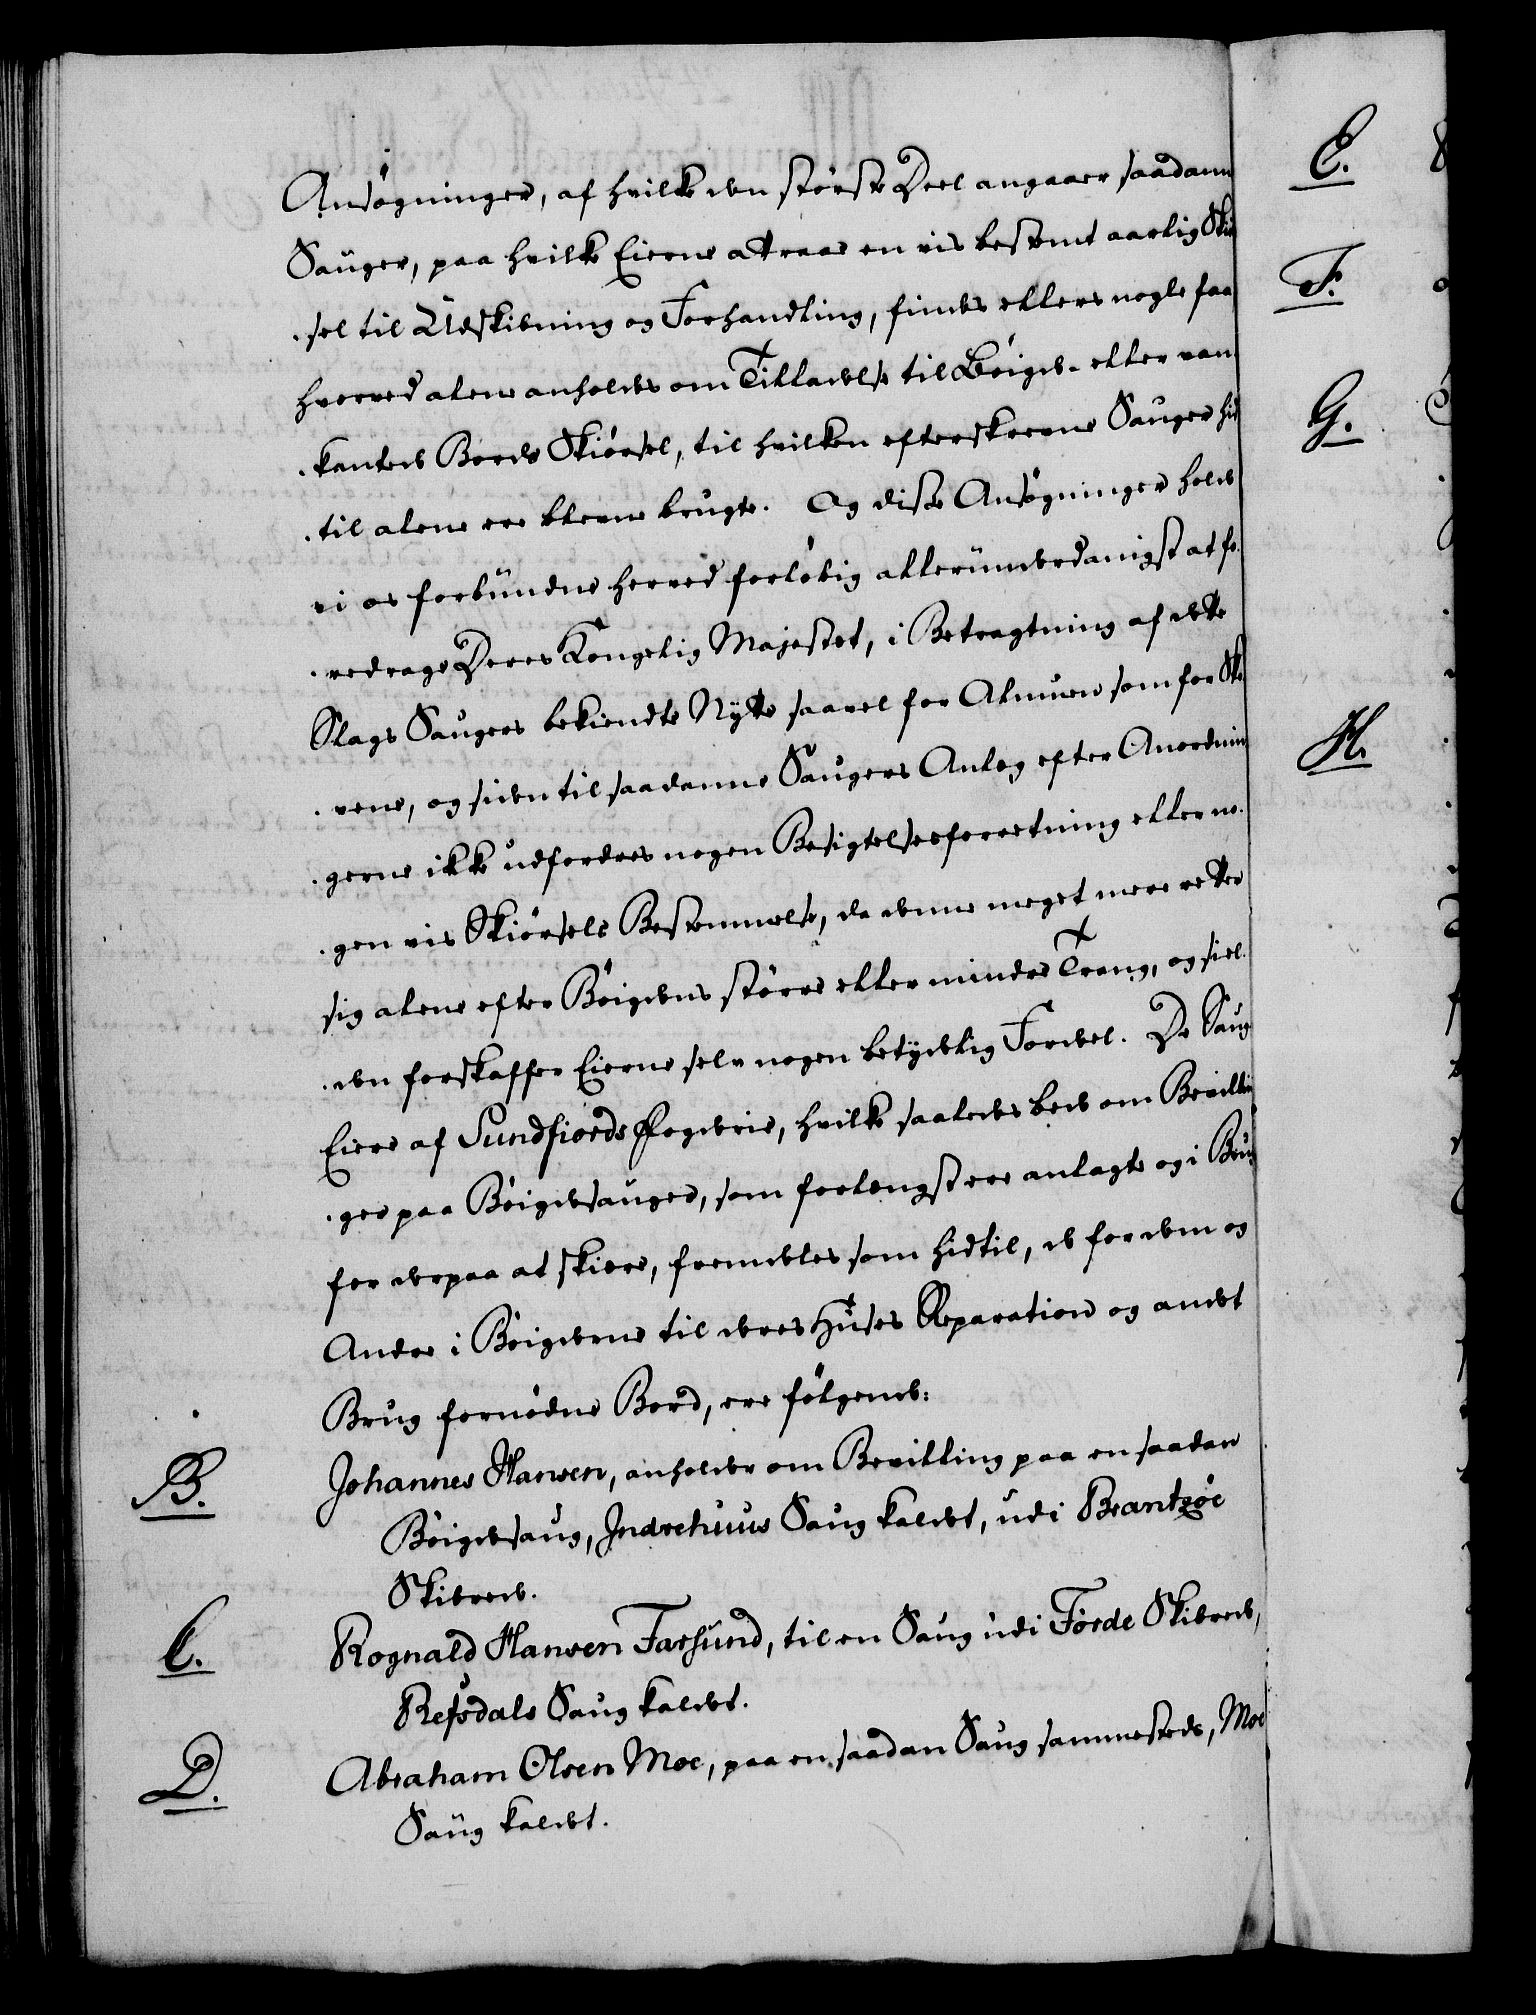 Ansøgninger, af hvilke den største Deel angaaer saadanne
Sauger, paa hvilke Eierne attraae en vis bestemt aarlig Skiø
sel til Udskibning og Forhandling, findes ellers nogle faa
hvorved alene anholdes om Tilladelse til Bøigde- eller van
kantede Bords Skiørsel, til hvilken efterskrevne Sauger hid
til alene ere blevne brugte. Og disse Ansøgninger holde
vi os forbundne herved forløbig allerunderdanigst at fo
redrage Deres Kongelig Majestet, i Betragtning af dette
Slags Saugers bekiendte Nytte saavel for Almuen som for Sko
vene, og siden til saadanne Saugers Anlæg efter Anordnin
gerne ikke udfordres nogen Besigtelsesforretning eller no
gen vis Skiørsels Bestemmelse, da denne meget mere retter
sig alene efter Bøigdens større eller mindre Trang, og siel
den forskaffer Eierne selv nogen betydelig Fordeel. De Saug
Eiere af Sundfiords Fogderie, hvilke saaledes bede om Bevillin
ger paa Bøigdesauger, som forlængst ere anlagte og i Brug
for derpaa at skiære, fremdeles som hidtil, de for dem og
Andre i Bøigderne til deres Huses Reparation og andet
Brug fornødne Bord, ere følgende:
B. Johannes Hansen, anholder om Bevilling paa en saadan
Bøigdesaug, Indrehuus Saug kaldet, udi Brantzøe
Skibrede.
C. Rognald Hansen Farsund, til en Saug udi Førde Skibrede,
Refsdals Saug kaldet.
D. Abraham Olsen Moe, paa en saadan Saug sammesteds, Moe
Saug kaldet.
E.
F.
G.
H.